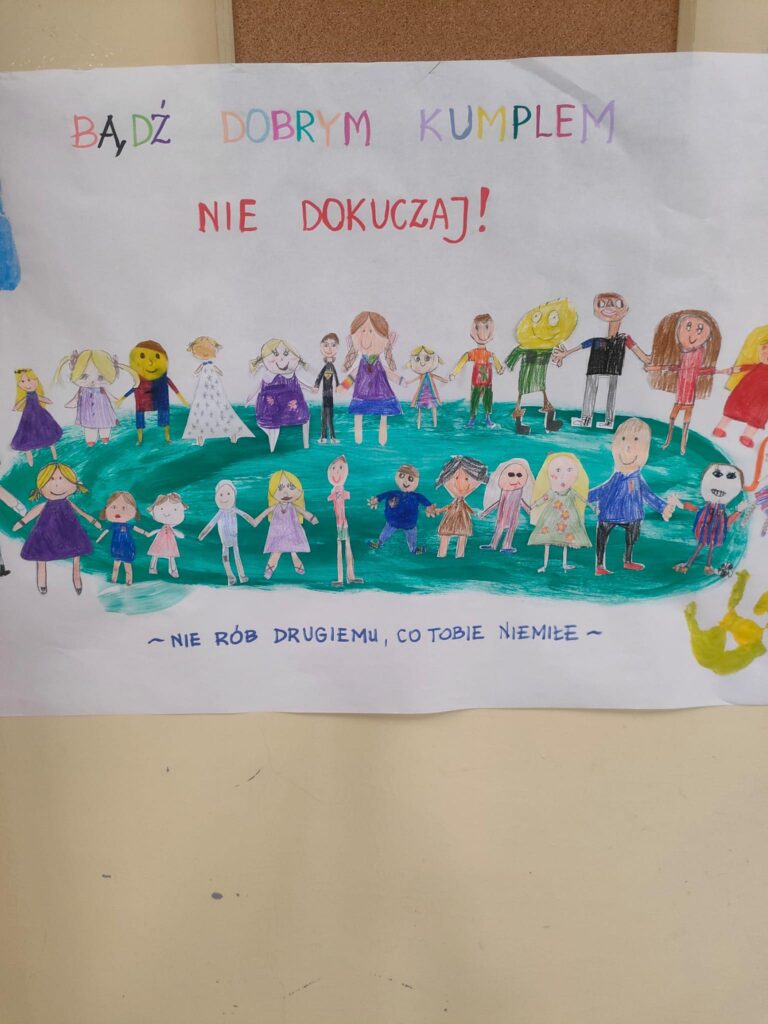 BĄDŹ DOBRYM KUMPLEM
NIE DOKUCZAJ!
~NIE RÓB DRUGIEMU, CO TOBIE NIEMIŁE~